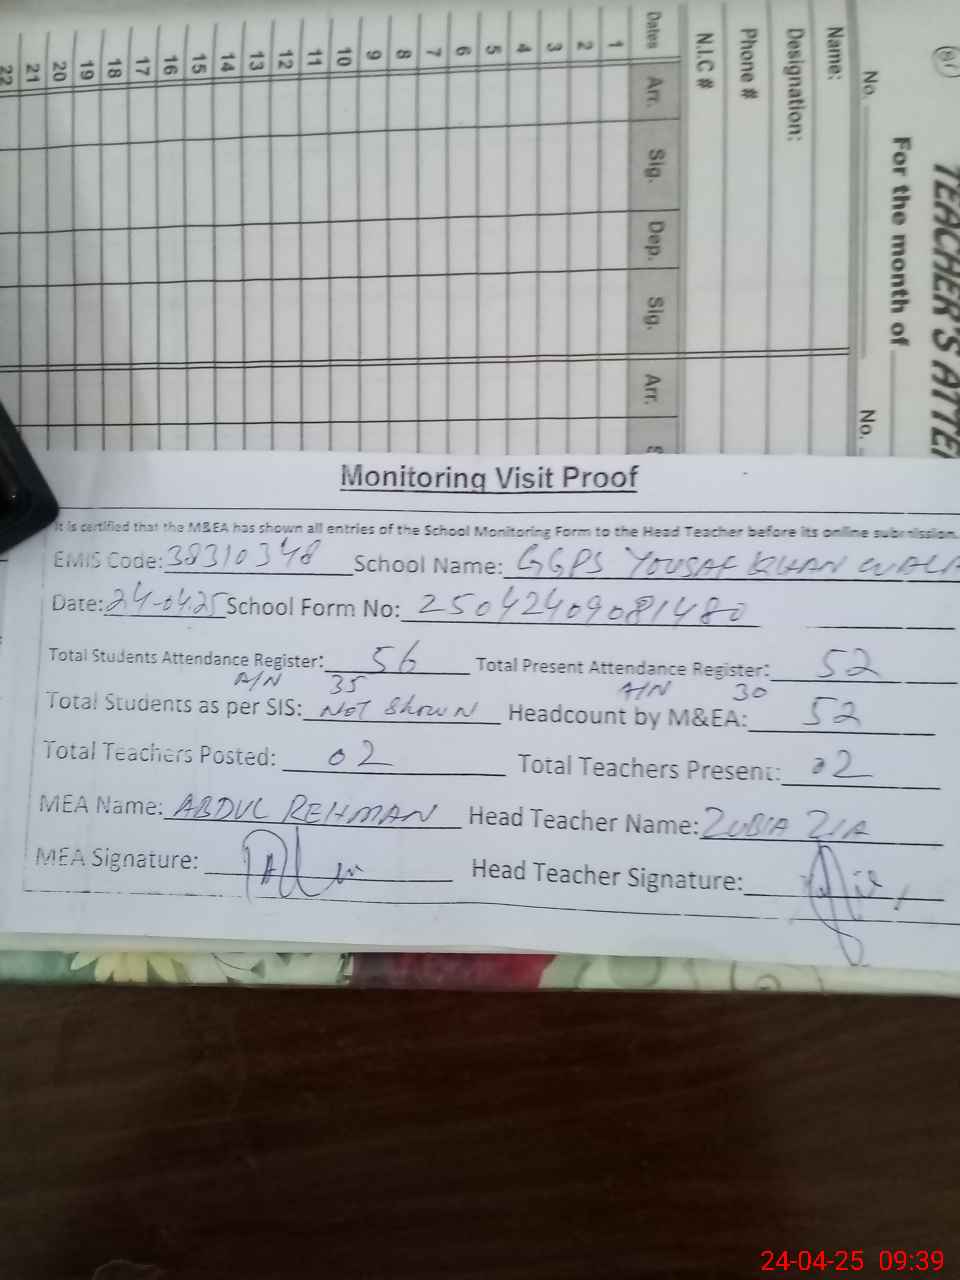 TEACHER'S ATTE
For the month of
No.
No.
Name:
Designation:
Phone #
N.I.C #
Dates Arr. Sig. Dep. Sig. Arr.
1
2
3
4
5
6
7
8
9
10
11
12
13
14
15
16
17
18
19
20
21
22
Monitoring Visit Proof
It is certified that the M&EA has shown all entries of the School Monitoring Form to the Head Teacher before its online submission.
EMIS Code: 38310348 School Name: GGPS YOUSAF KHAN WALA
Date: 24-04-25 School Form No: 25042409081480
Total Students Attendance Register: 56 Total Present Attendance Register: 52
A/N 35 A/N 30
Total Students as per SIS: NOT Shown Headcount by M&EA: 52
Total Teachers Posted: 02 Total Teachers Present: 02
MEA Name: ABDUL REHMAN Head Teacher Name: ZUBIA ZIA
MEA Signature: Head Teacher Signature:
24-04-25 09:39